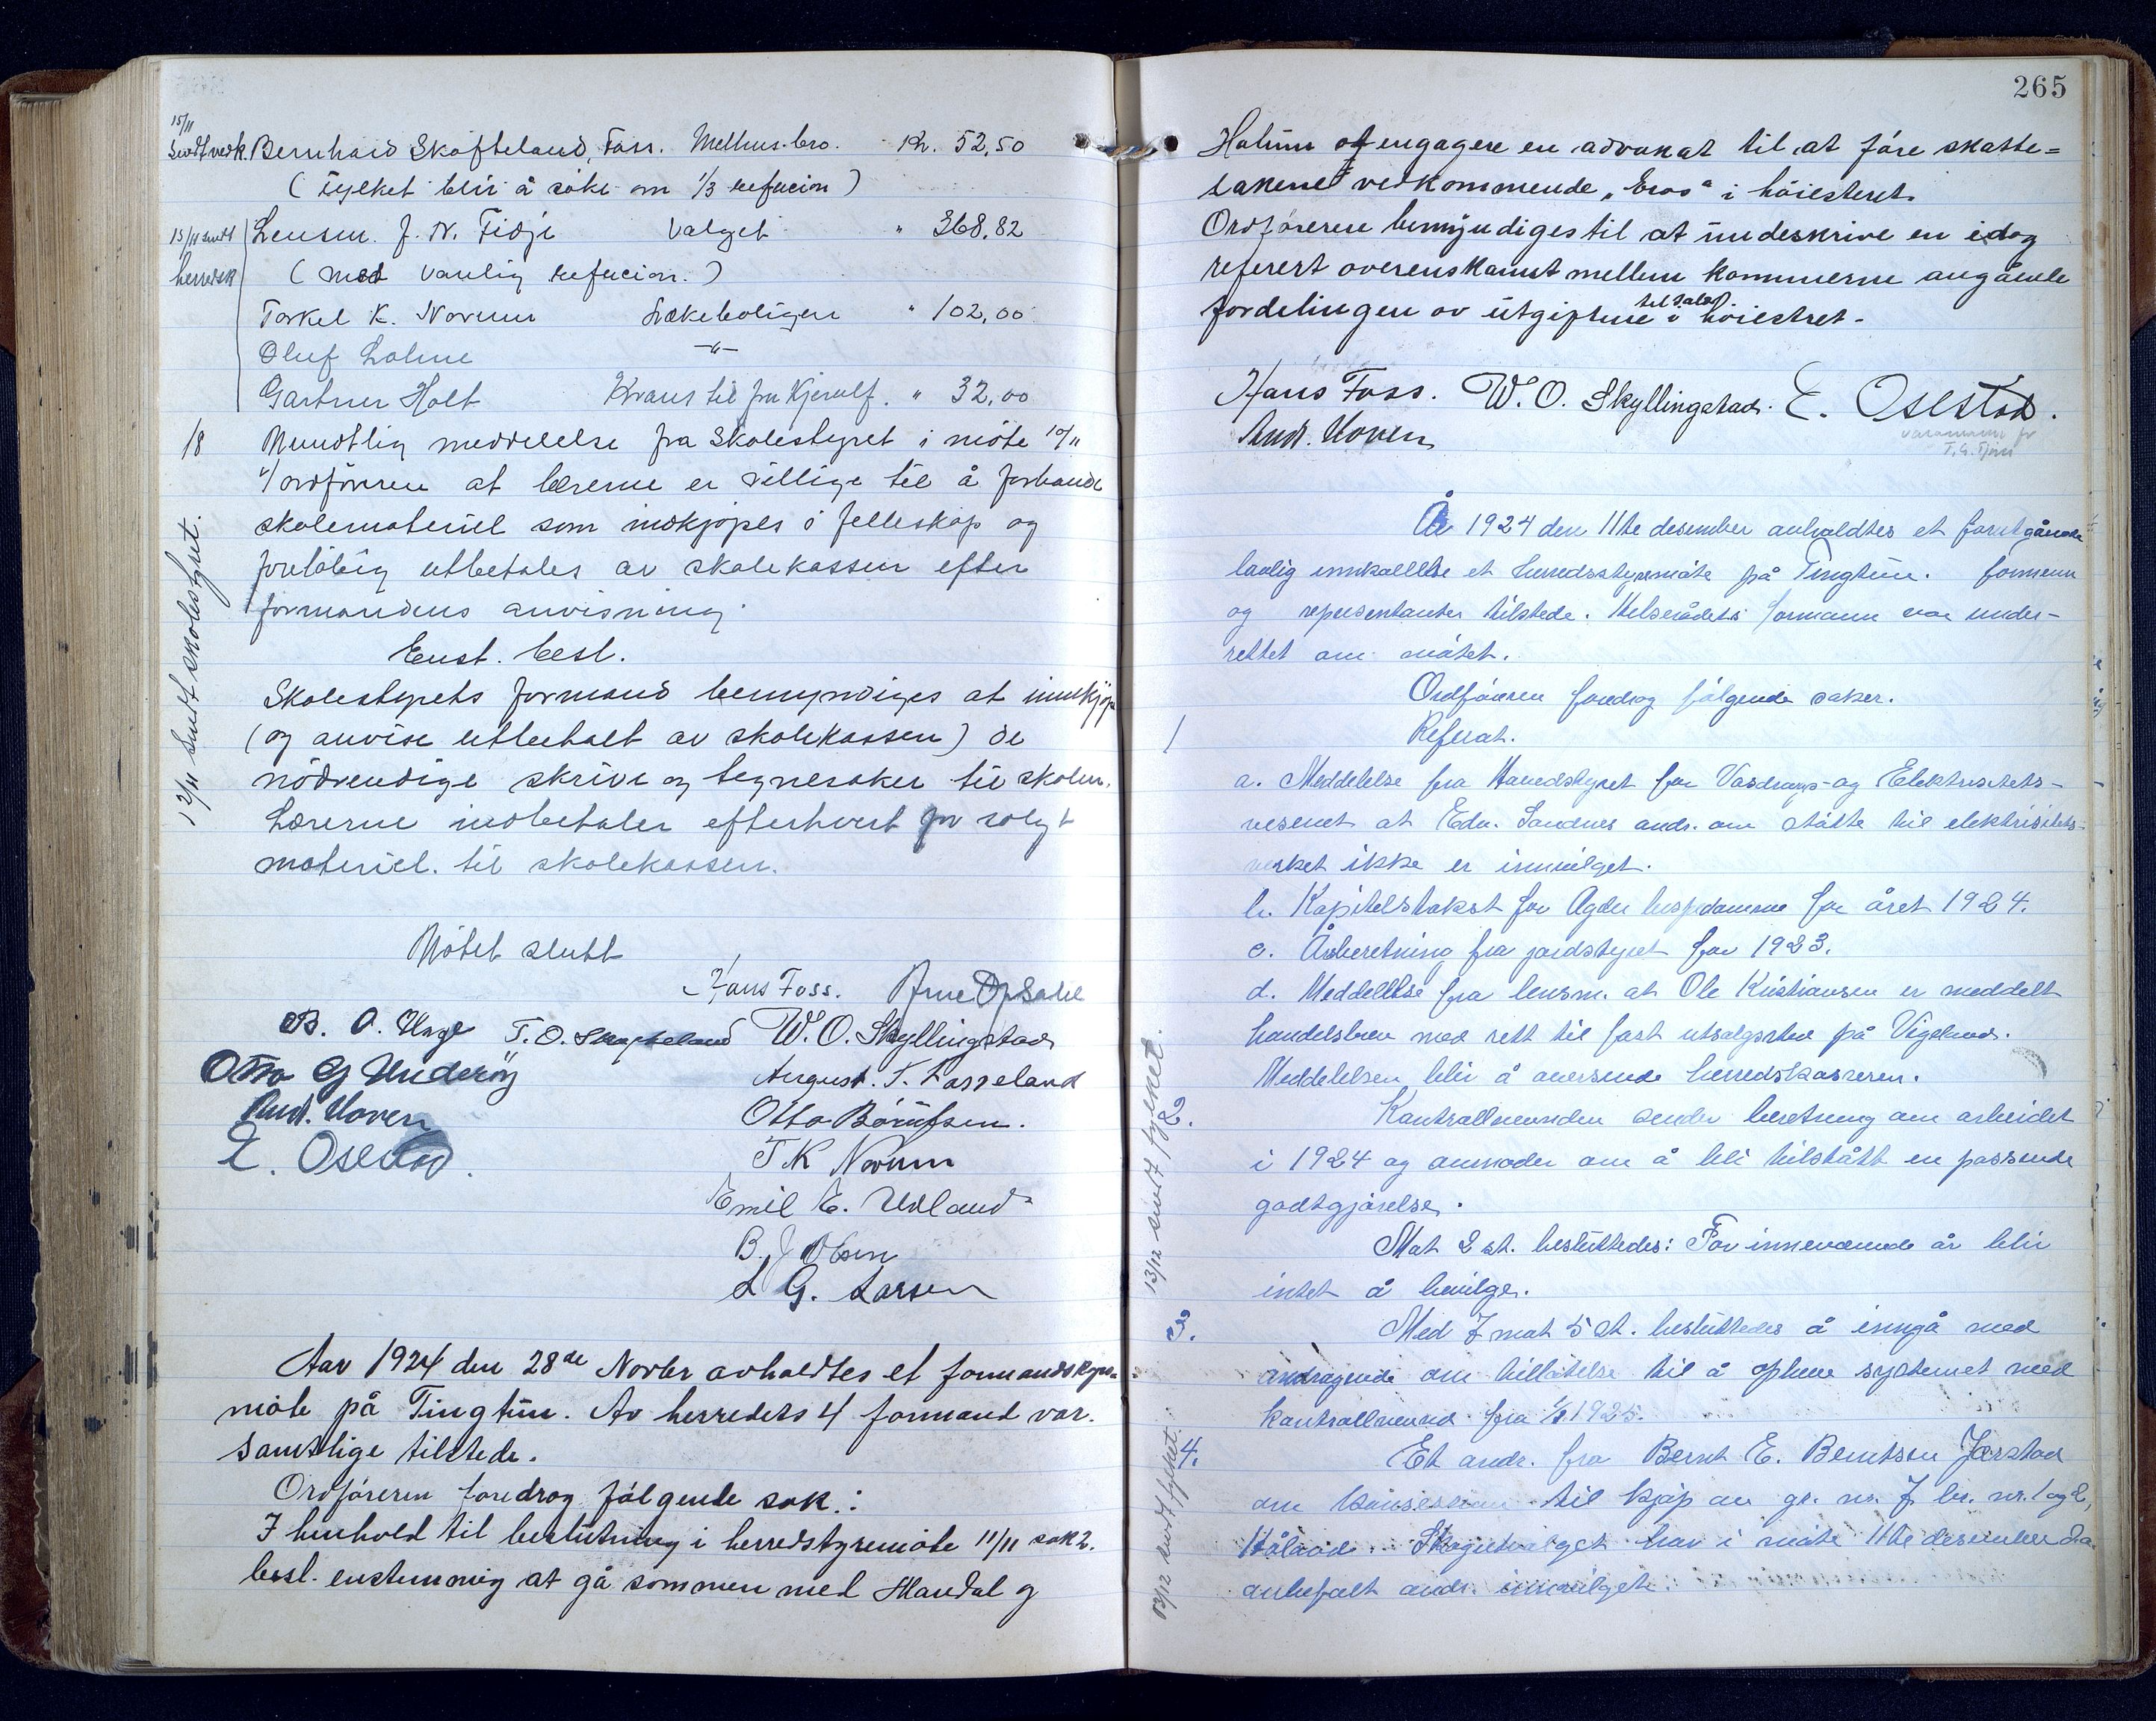 15/11
Sendt vedk. Bernhard Skofteland, Foss. Melhus bro. Kr. 52,50
(Fylket blir å søke om 1/3 refucion)
15/11 sendt Lensm. J. N. Fidje Valget " 368,82
herredsk (med vanlig refucion.)
Torkel K. Norum Lækeboligen " 102,00
Oluf Lohne -"-
Gartner Holt Krans til fru Kjerulf. " 32,00
18 Mundtlig meddelelse fra Skolestyret i møte 10/11
v/ordføreren at lærerne er villige til å forhandle
skolemateriel som indkjøpes i felleskap og
foreløbig utbetales av skolekassen efter
formandens anvisning.
Enst. besl.
Skolestyrets formand bemyndiges at innkjøpe
(og anvise utbetalt av skolekassen) de
nödvendige skrive og tegnesaker til skolen.
Lærerne indbetaler efterhvert for solgt
materiel. til skolekassen.
12/11 Sendt skolestyret.
Møtet slutt
Hans Foss. Arne Opsahl
B. O. Unge T. O. Skofteland W. O. Skyllingstad
Otto G Underöy August. T. Fasseland
And. Hoven Otto Börufsen.
E. Oselstad. T K Norum
Emil E. Udland
B. J Olsen
L G. Larsen
Aar 1924 den 28de Novbr avholdtes et formandskaps-
möte på Tingtun. Av herredets 4 formænd var
samtlige tilstede.
Ordföreren foredrog fölgende sak.:
I henhold til beslutning i herredstyremöte 11/11 sak 2.
besl. enstemmig at gå sammen med Mandal og
265
Halum og engagere en advokat til at före skatte=
sakene vedkommende "Eros" i höiesteret.
Ordföreren bemyndiges til at underskrive en idag
referert overenskomst mellem kommunerne angående
fordelingen av utgiptene til sak. i höiestret.
Hans Foss. W. O. Skyllingstad. E. Oselstad.
And. Hoven varamann for
T. G. Fjeld
År 1924 den 11te desember avholdtes et forutgående
lovlig innkallelse et herredsstyremøte på Tingtun. formenn
og representanter tilstede. Helserådets formann var under-
rettet om møtet.
Ordføreren foredrog følgende saker.
1 Referat.
a. Meddelelse fra Hovedstyret for Vasdrags- og Elektrisitets-
vesenet at Edv. Sandnes andr. om støtte til elektrisitets-
verket ikke er innvilget.
b. Kapitelstakst for Agder bispedømme for året 1924.
c. Årsberetning fra jordstyret for 1923.
d. Meddelelse fra lensm. at Ole Kristiansen er meddelt
handelsbrev med rett til fast utsalgssted på Vigeland.
Meddelelsen blir å oversende herredskassereren.
2. Kontrollnevnden sender beretning om arbeidet
i 1924 og anmoder om å bli tilstått en passende
godtgjørelse.
Mot 2 st. besluttedes: For inneværende år blir
intet å bevilge.
13/12 sendt fylket.
3. Med 7 mot 5 st. besluttedes å inngå med
andragende om tillatelse til å opheve systemet med
kontrollnevnd fra 1/1 1925.
4. Et andr. fra Bernt E. Berntsen Jærstad
om konsession til kjøp av gr. nr. 7 br. nr. 1 og 2,
Skogutvalget har i møte 11te desember d.a.
anbefalt andr. innvilget.
13/12 sendt fylket.